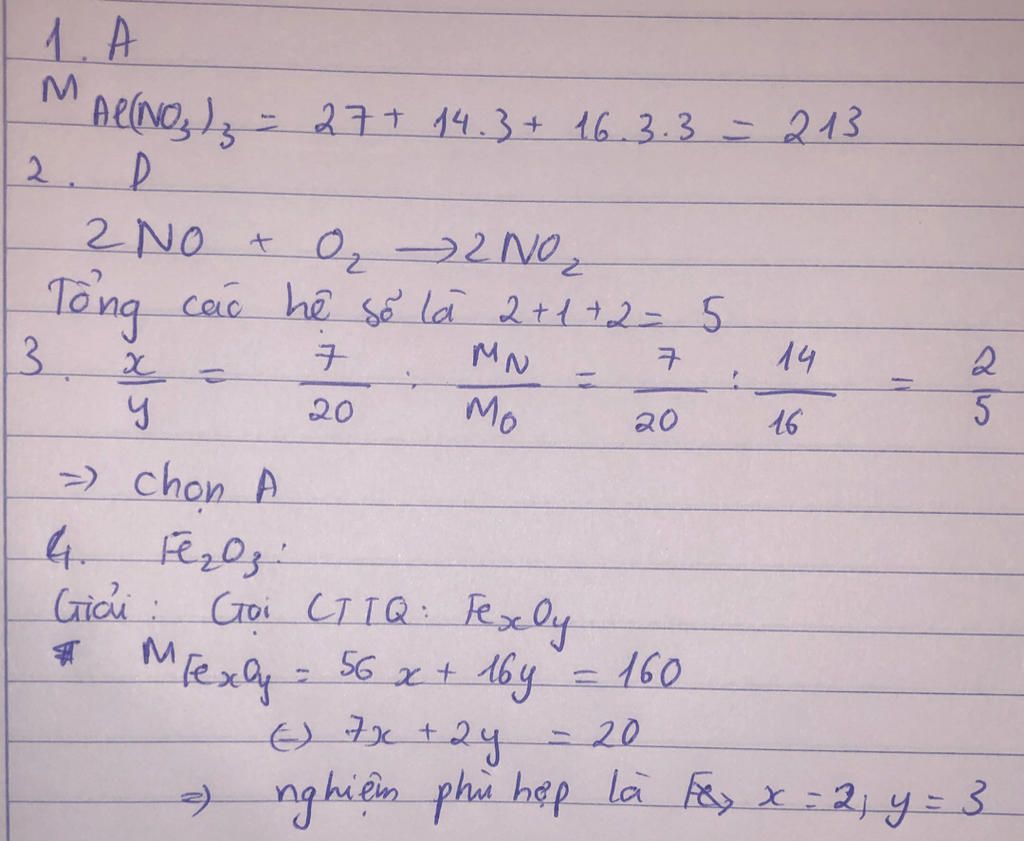 1. A
M Al(NO3)3 = 27 + 14.3 + 16.3.3 = 213
2. D
2NO + O2 → 2NO2
Tổng các hệ số là 2+1+2= 5
3. x/y = 7/20 : MN/MO = 7/20 : 14/16 = 2/5
=> chọn A
4. Fe2O3:
Giải: Gọi CTTQ: FexOy
MFexOy = 56x + 16y = 160
(=) 7x + 2y = 20
=> nghiệm phù hợp là Fe, x = 2, y = 3